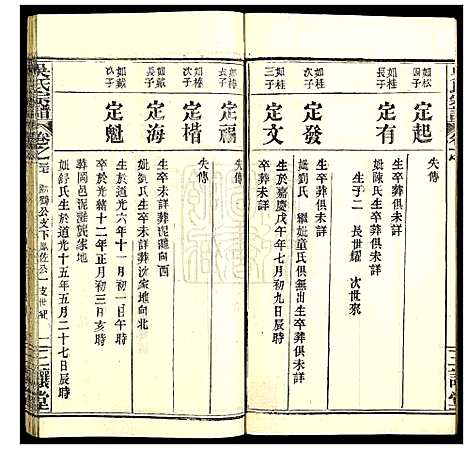 如松
長子
定起
失傳
如桂
四子
定有
生卒葬俱未詳
妣陳氏生卒葬俱未詳
生子二 長世耀 次世來
如桂
次子
定發
生卒葬俱未詳
妣劉氏 繼妣童氏俱無出生卒葬俱未詳
如桂
三子
定文
生於嘉慶戊午年七月初九日辰時
卒葬未詳
如椿
長子
定福
失傳
如椿
次子
定楷
失傳
如戴
長子
定海
生卒未詳葬泥灘地向西
妣劉氏生卒未詳葬沈家地向北
如戴
次子
定魁
生於道光六年十一月初一日午時
卒於光緒十二年正月初三日亥時
葬岡邑泥灘龔家地
妣舒氏生於道光十五年五月二十七日辰時
吳氏宗譜
卷之
公支下
佐公一支世紀
三讓堂